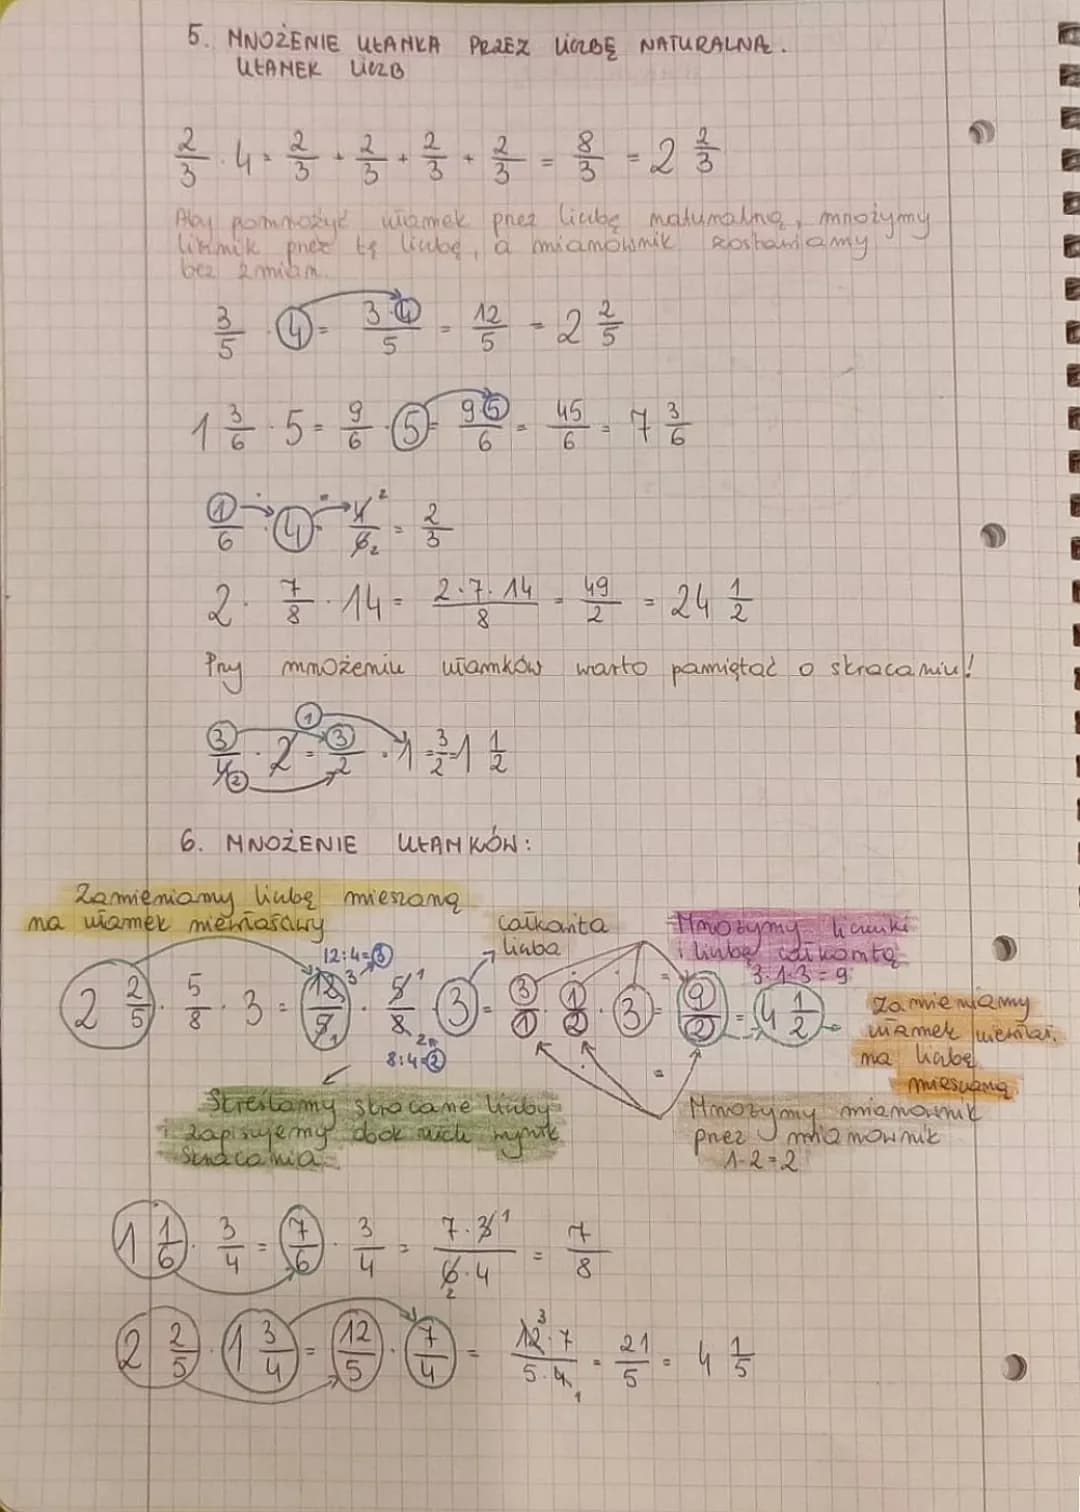 5. MNOŻENIE UŁAMKA PRZEZ LICZBĘ NATURALNĄ.
UŁAMEK LICZB
2/3 · 4 = 2/3 + 2/3 + 2/3 + 2/3 = 8/3 = 2 2/3
Aby pomnożyć ułamek przez liczbę naturalną, mnożymy
licznik przez tę liczbę, a mianownik zostawiamy
bez zmian.
3/5 · 4 = 3·4/5 = 12/5 = 2 2/5
1 3/6 · 5 = 9/6 · 5 = 9·5/6 = 45/6 = 7 3/6
1/6 · 4 = 4 2/6 2 = 2/3
2 · 7/8 · 14 = 2·7·14/8 = 49/2 = 24 1/2
Przy mnożeniu ułamków warto pamiętać o skracaniu!
1
3/4 2 · 2 = 3/2 · 1 = 3/2 = 1 1/2
6. MNOŻENIE UŁAMKÓW:
Zamieniamy liczbę mieszaną
na ułamek niewłaściwy
całkowita
liczba
Mnożymy liczniki
i liczbę całkowitą
3·1·3=9
12:4=3
2 2/5 · 5/8 · 3 = 12 3/5 1 · 5 1/8 2 · 3 = 3/1 · 1/2 · 3 = 9/2 = 4 1/2
8:4=2
Zamieniamy
ułamek niewłaś.
na liczbę
mieszaną
Skreślamy skracane liczby
i zapisujemy obok nich wynik
skracania
Mnożymy mianownik
przez mianownik
1·2=2
1 1/6 · 3/4 = 7/6 · 3/4 = 7·3 1/6 2·4 = 7/8
2 2/5 · 1 3/4 = 12/5 · 7/4 = 12 3·7/5·4 1 = 21/5 = 4 1/5